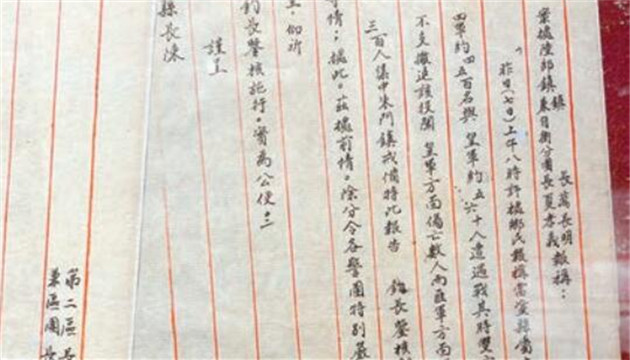 案據陸郎鎮鎮長萬長明
兼自衛分團長夏孝義報稱：
昨日(七日)上午八時許據鄉民報稱當塗縣
四軍約四五百名與 皇軍約五六十人遭遇戰其時雙
不支撤退該役聞 皇軍方面傷亡數人而匪軍方面
三百人集中朱門鎮戒備特此報告 鈞長鑒核
等情；據此。茲據前情。除分令各警團特別嚴
上，仰祈
鈞長鑒核施行。實為公便三
謹呈
縣長陳
第二區長
兼區團長